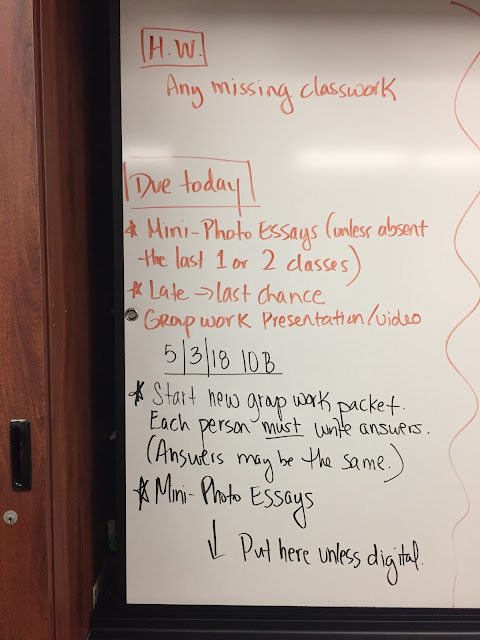 H.W.
Any missing classwork
Due today
* Mini-Photo Essays (unless absent
the last 1 or 2 classes)
* Late → last chance
Group work Presentation/video
5/3/18 10B
* Start new group work packet.
Each person must write answers.
(Answers may be the same.)
* Mini-Photo Essays
↓ Put here unless digital.